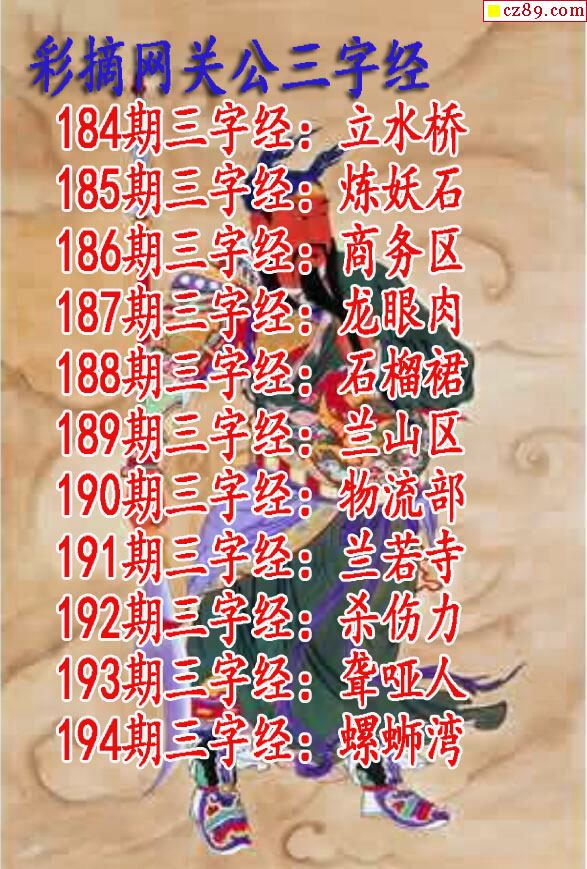 cz89.com
彩摘网关公三字经
184期三字经：立水桥
185期三字经：炼妖石
186期三字经：商务区
187期三字经：龙眼肉
188期三字经：石榴裙
189期三字经：兰山区
190期三字经：物流部
191期三字经：兰若寺
192期三字经：杀伤力
193期三字经：聋哑人
194期三字经：螺蛳湾